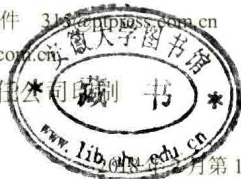 件 315@ptpress.com.cn
com.cn
安徽大学图书馆
任公司印刷
藏书
www.lib.ahu.edu.cn
2018 年 2 月第 1